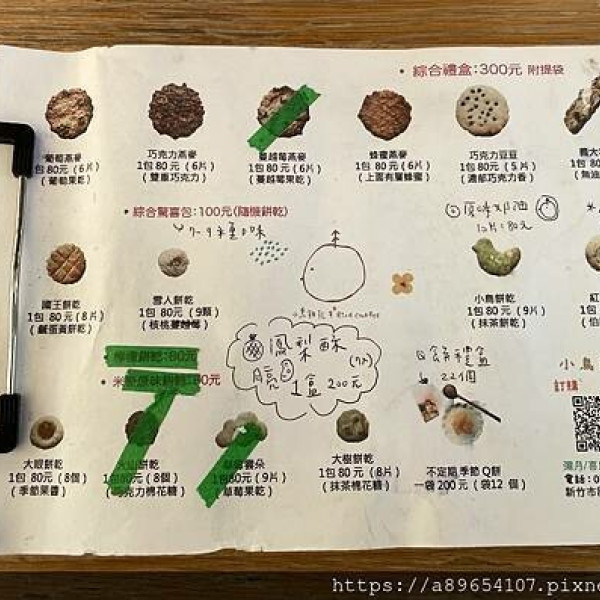 • 綜合禮盒:300元 附提袋
葡萄燕麥
1包 80元 (6片)
(葡萄果乾)
巧克力燕麥
1包 80元 (6片)
(雙重巧克力)
蔓越莓燕麥
1包 80元 (6片)
(蔓越莓果乾)
蜂蜜燕麥
1包 80元 (6片)
(上面有層蜂蜜)
巧克力豆豆
1包 80元 (5片)
(濃郁巧克力香)
義大
1包 80
(無油
• 綜合驚喜包:100元(隨機餅乾)
7-9種口味
原味奶油
12片:80元
國王餅乾
1包 80元 (8片)
(鹹蛋黃餅乾)
雪人餅乾
1包 80元 (9顆)
(核桃蔓越莓)
小鳥餅乾
1包 80元 (9片)
(抹茶餅乾)
紅
1包
(伯
• 檸檬餅乾:80元
鳳梨酥
1盒 200元
禮盒
22個
小鳥
訂購
大眼餅乾
1包 80元 (8個)
(季節果醬)
火山餅乾
80元 (8個)
巧克力棉花糖)
雲朵
80元 (9片)
(草莓果乾)
大樹餅乾
1包 80元 (8片)
(抹茶棉花糖)
不定期 季節 Q餅
一袋200元 (袋12 個)
彌月/喜
電話:0
新竹市
https://a89654107.pixne